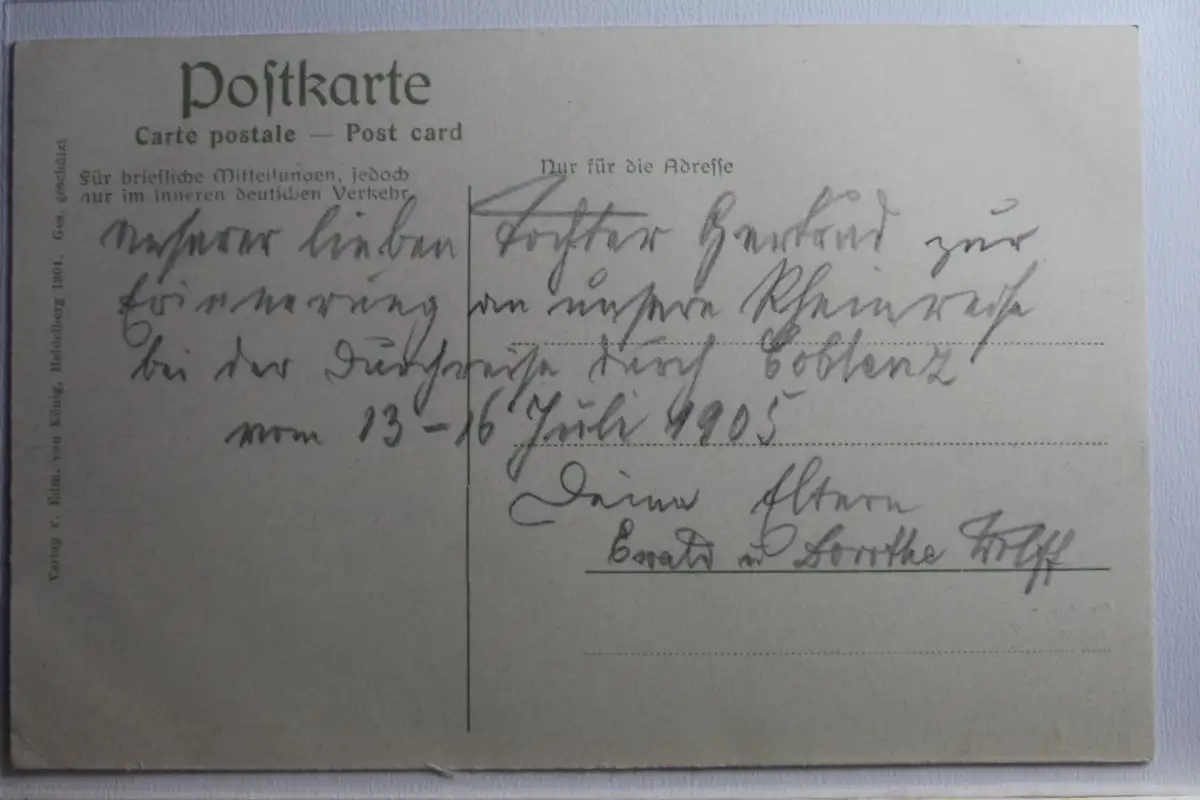 Postkarte
Carte postale — Post card
Für briefliche Mitteilungen, jedoch
nur im inneren deutschen Verkehr
Nur für die Adresse
Unserer lieben Tochter Gertrud zur
Erinnerung an unsere Rheinreise
bei der Durchreise durch Coblenz
vom 13-16 Juli 1905
Deine Eltern
Ewald u Dorothe Wolff
Verlag v. Edm. von König, Heidelberg 1904. Ges. geschützt